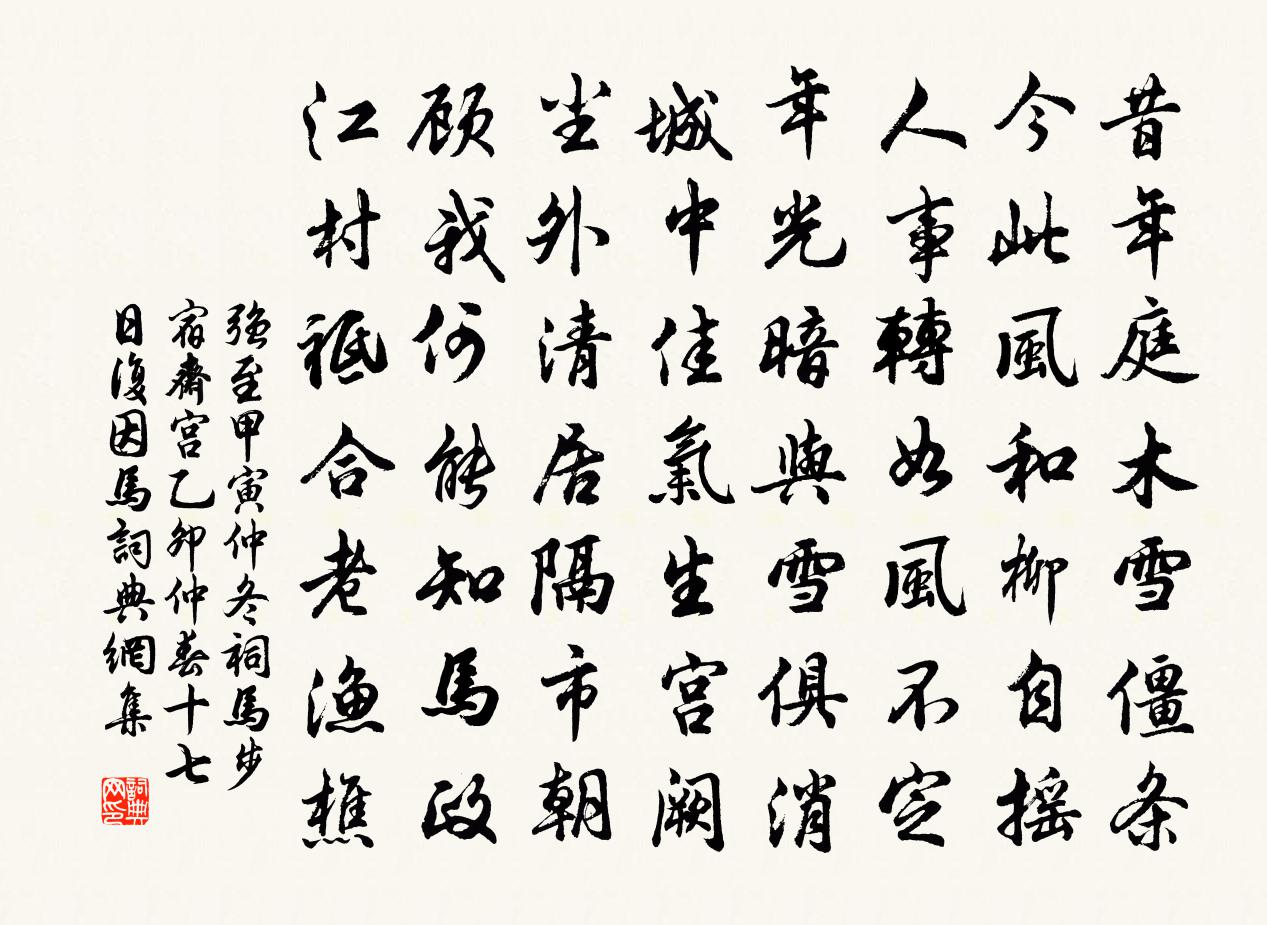 昔年庭木雪僵条
今此風和柳自摇
人事轉如風不定
年光暗與雪俱消
城中佳氣生宫阙
尘外清居隔市朝
顾我何能知馬政
江村祗合老渔樵
強至甲寅仲冬祠馬步
宿齋宫乙卯仲春十七
日復因馬詞典網集
詞典網印